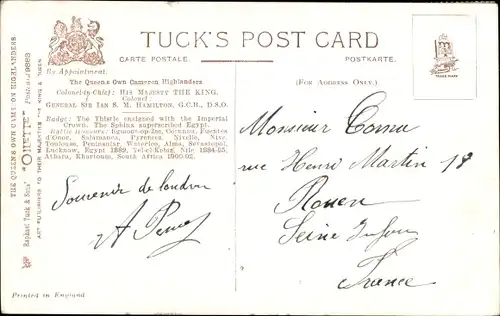 TUCK'S POST CARD
CARTE POSTALE. POSTKARTE.
By Appointment.
The Queens Own Cameron Highlanders
Colonel-in-Chief: HIS MAJESTY THE KING.
Colonel:
GENERAL SIR IAN S. M. HAMILTON, G.C.B., D.S.O.
Badge: The Thistle ensigned with the Imperial
Crown. The Sphinx superscribed Egypt.
Battle Honours: Egmont-op-Zee, Corunna, Fuentes
d'Onor, Salamanca, Pyrenees, Nivelle, Nive,
Toulouse, Peninsular, Waterloo, Alma, Sevastopol,
Lucknow, Egypt 1882, Tel-el-Kebir, Nile 1884-85,
Atbara, Khartoum, South Africa 1900-02.
(FOR ADDRESS ONLY.)
TRADE MARK
THE QUEENS OWN CAMERON HIGHLANDERS.
Raphael Tuck & Sons' "OILETTE" Postcard 9885
ART PUBLISHERS TO THEIR MAJESTIES THE KING & QUEEN
Souvenir de London
A
Monsieur Cornu
rue Henri Martin 18
Rouen
Seine Infre
France
Printed in England